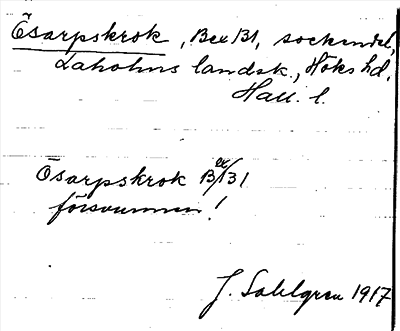 Ösarpskrok, Bex 131, sockendel,
Laholms landsk., Höks hd,
Hall. l.
Ösarpskrok Bex 131
försvunnen!
J. Sahlgren 1917